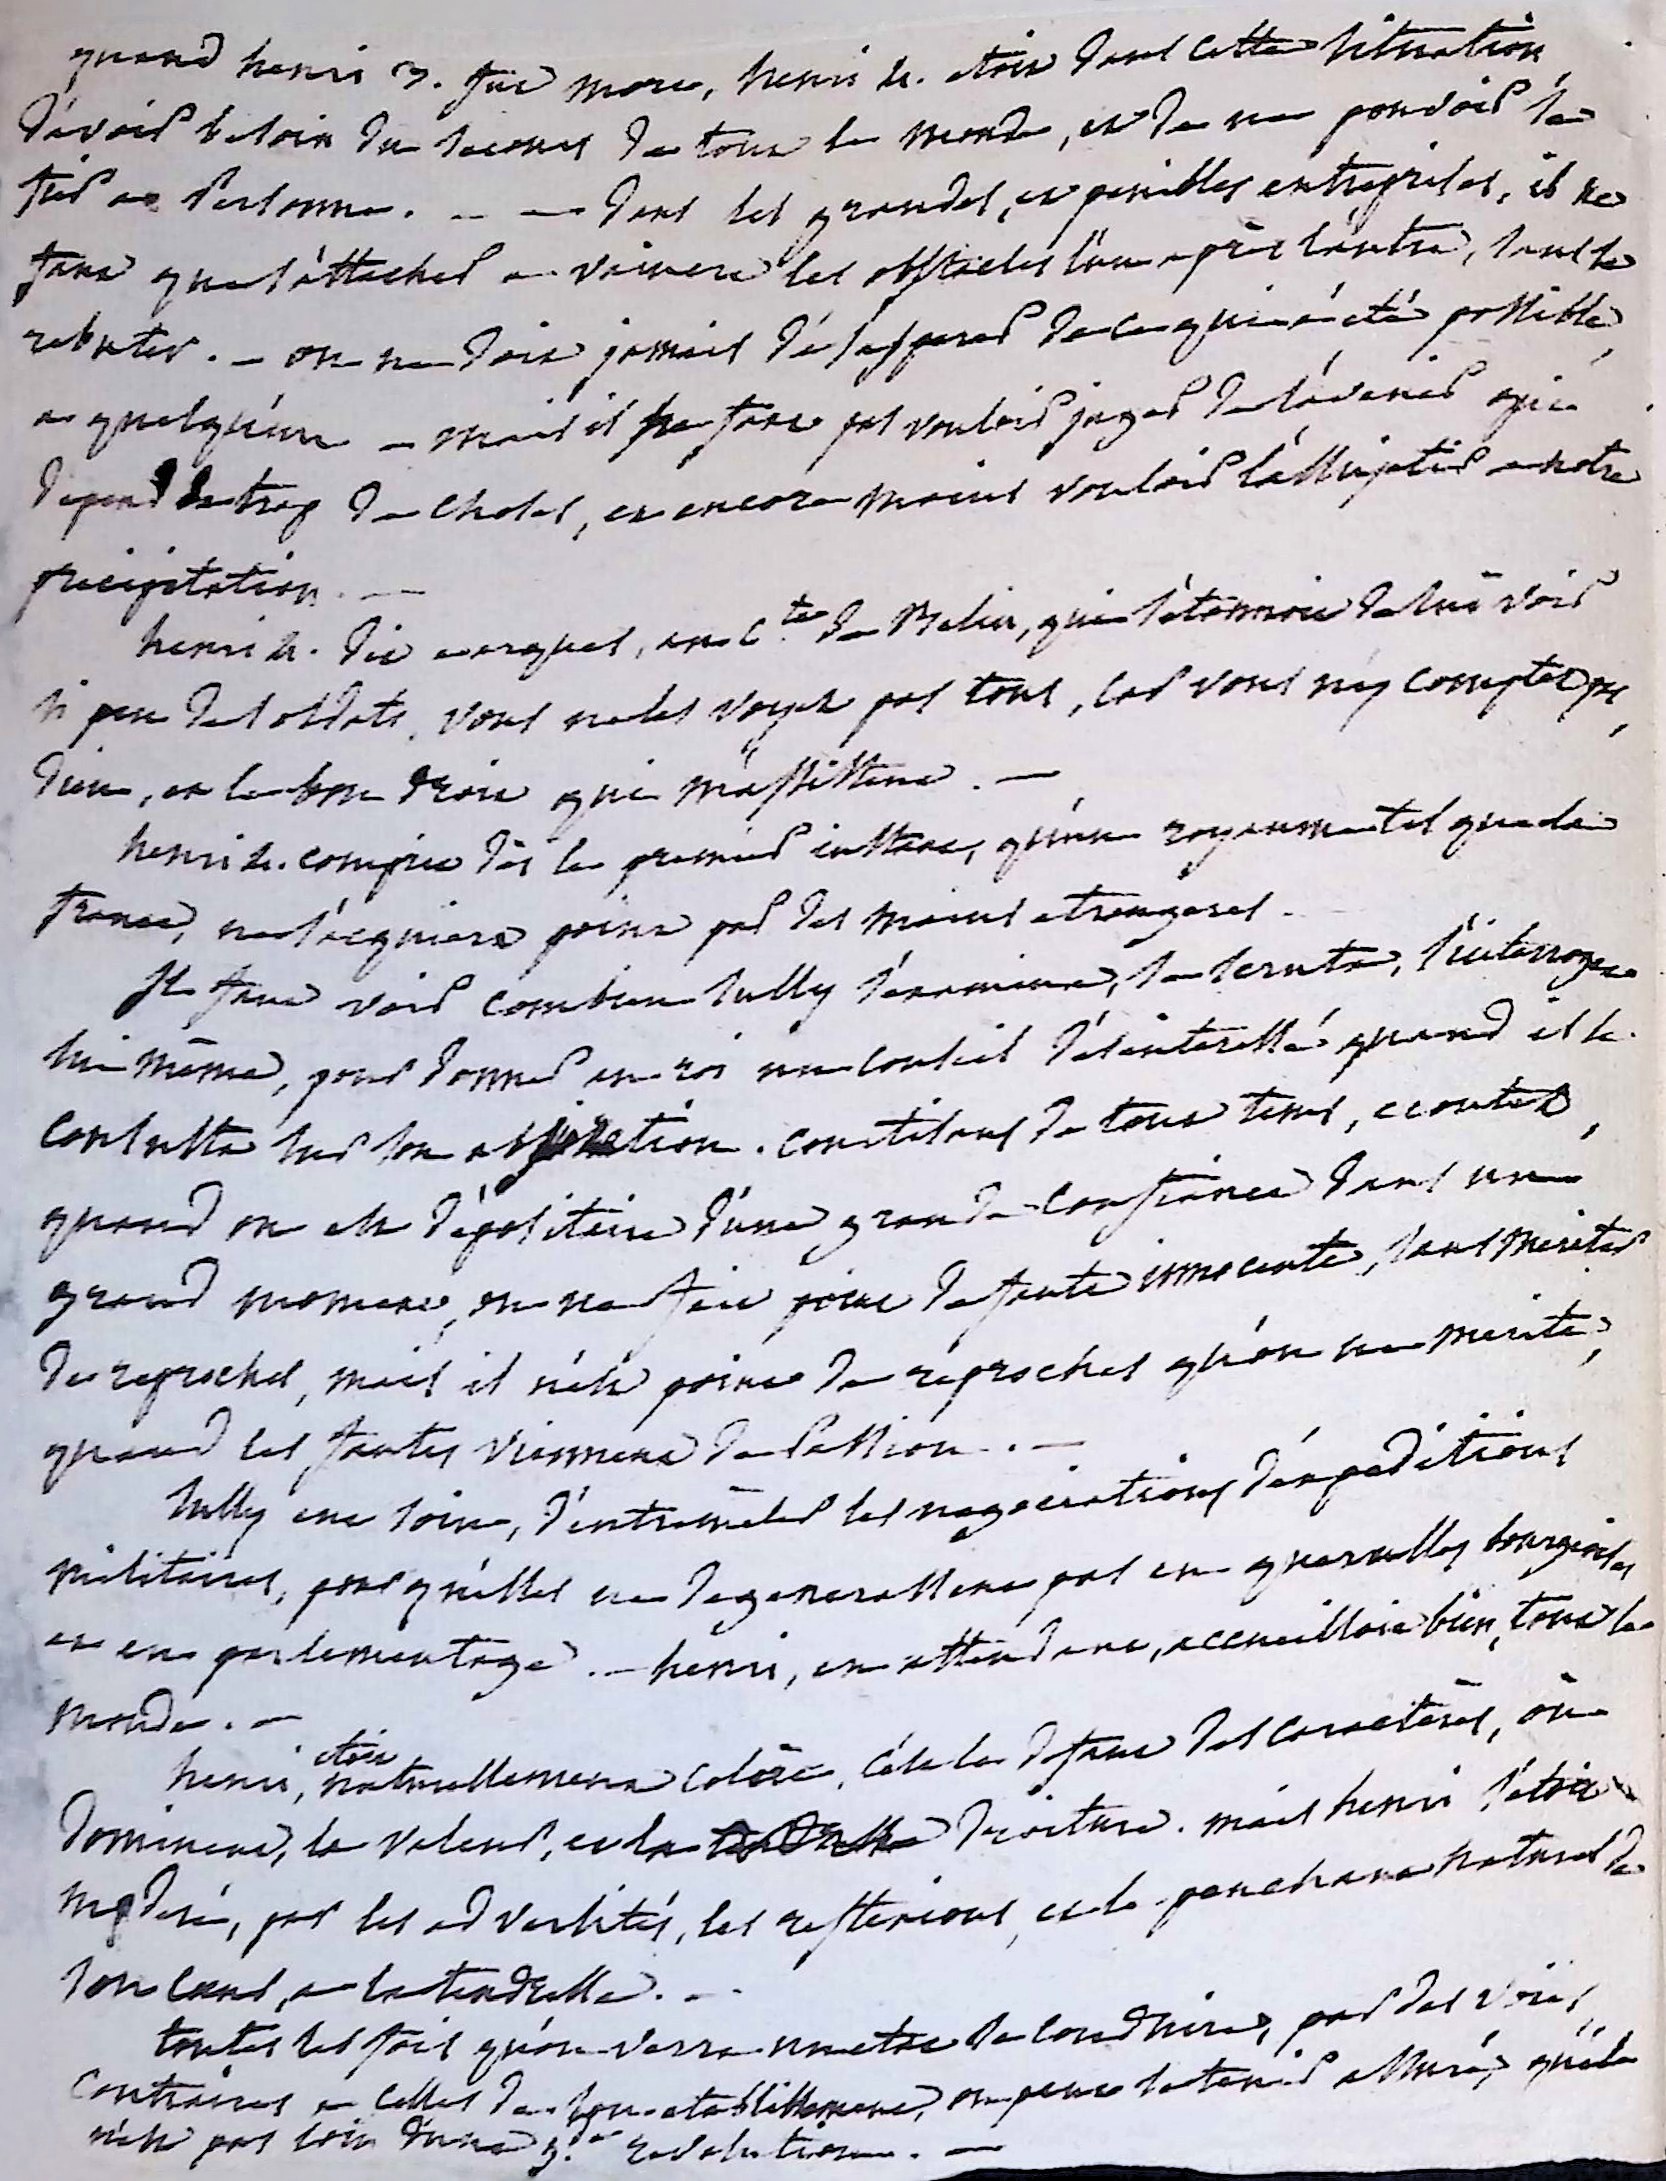 quand henri 3. fut mort, henri 4. etoit dans cette situation
d'avoir besoin du secours de tout le monde, et de ne pouvoir se
fier a personne. — — dans les grandes, et penibles entreprises, il ne
faut que s'attacher a vaincre les obstacles l'un après l'autre, sans se
rebuter. — on ne doit jamais désespérer de ce qui a été possible,
a quelqu'un — mais il ne faut pas vouloir juger de l'avenir qui
depend de trop de choses, et encore moins vouloir l'assujetir a notre
precipitation. —
henri 4. dit a arques, au c.te de Belin, qui s'étonnoit de lui voir
si peu de soldats, vous ne les voyez pas tous, car vous n'y comptez pas,
dieu, et le bon droit qui m'assistent. —
henri 4. comprit dès le premier instant, qu'un royaume tel que la
france, ne s'acquiert point par des mains etrangeres.
Il faut voir combien sully s'examine, se scrute, s'interroge
lui même, pour donner au roi un conseil désinteressé quand il le
consulta sur son abjuration. courtisans de tous tems, ecoutez,
quand on est dépositaire d'une grande confiance dans un
grand moment, on ne fait point de faute innocente, sans meriter
de reproches, mais il n'est point de réproches qu'on ne merite,
quand les fautes viennent de passion. —
sully eut soin, d'entremêler les negociations d'éxpeditions
militaires, pour qu'elles ne degenerassent pas en querelles bourgeoises
et en parlementage. — henri, en attendant, accueilloit bien, tout le
monde. —
henri, etoit naturellement colère, c'est le defaut des caractères, où
dominent, la valeur, et la droiture. mais henri s'etoit
modéré, par les adversités, les reflexions, et le penchant naturel de
son cœur, a la tendresse. —
toutes les fois qu'on verra un etat se conduire, par des voies
contraires a celles de son etablissement, on peut se tenir assuré, qu'il
n'est pas loin d'une g.de revolution. —